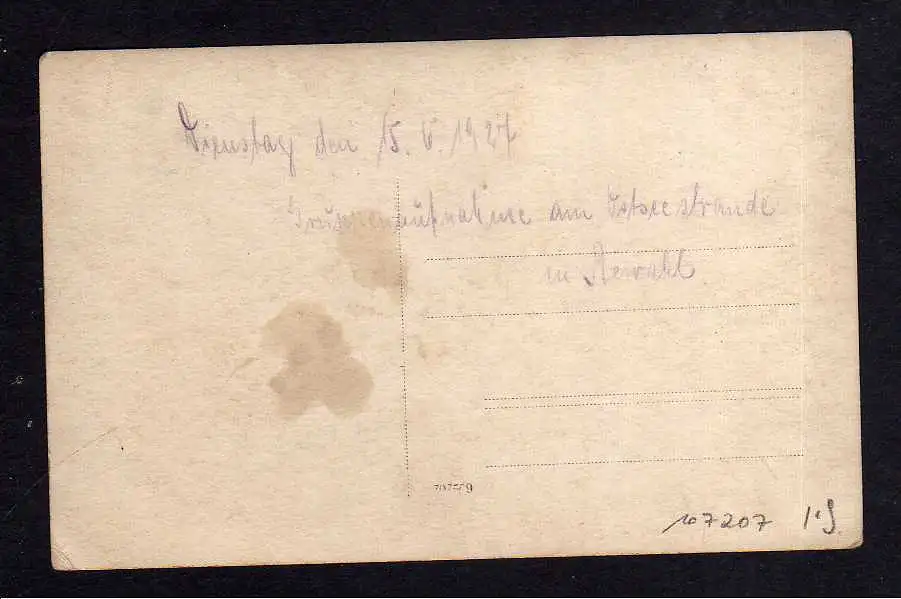 Dienstag den 15. V. 1927
Gruppenaufnahme am Ostseestrande
in Rewahl
107207 1'9